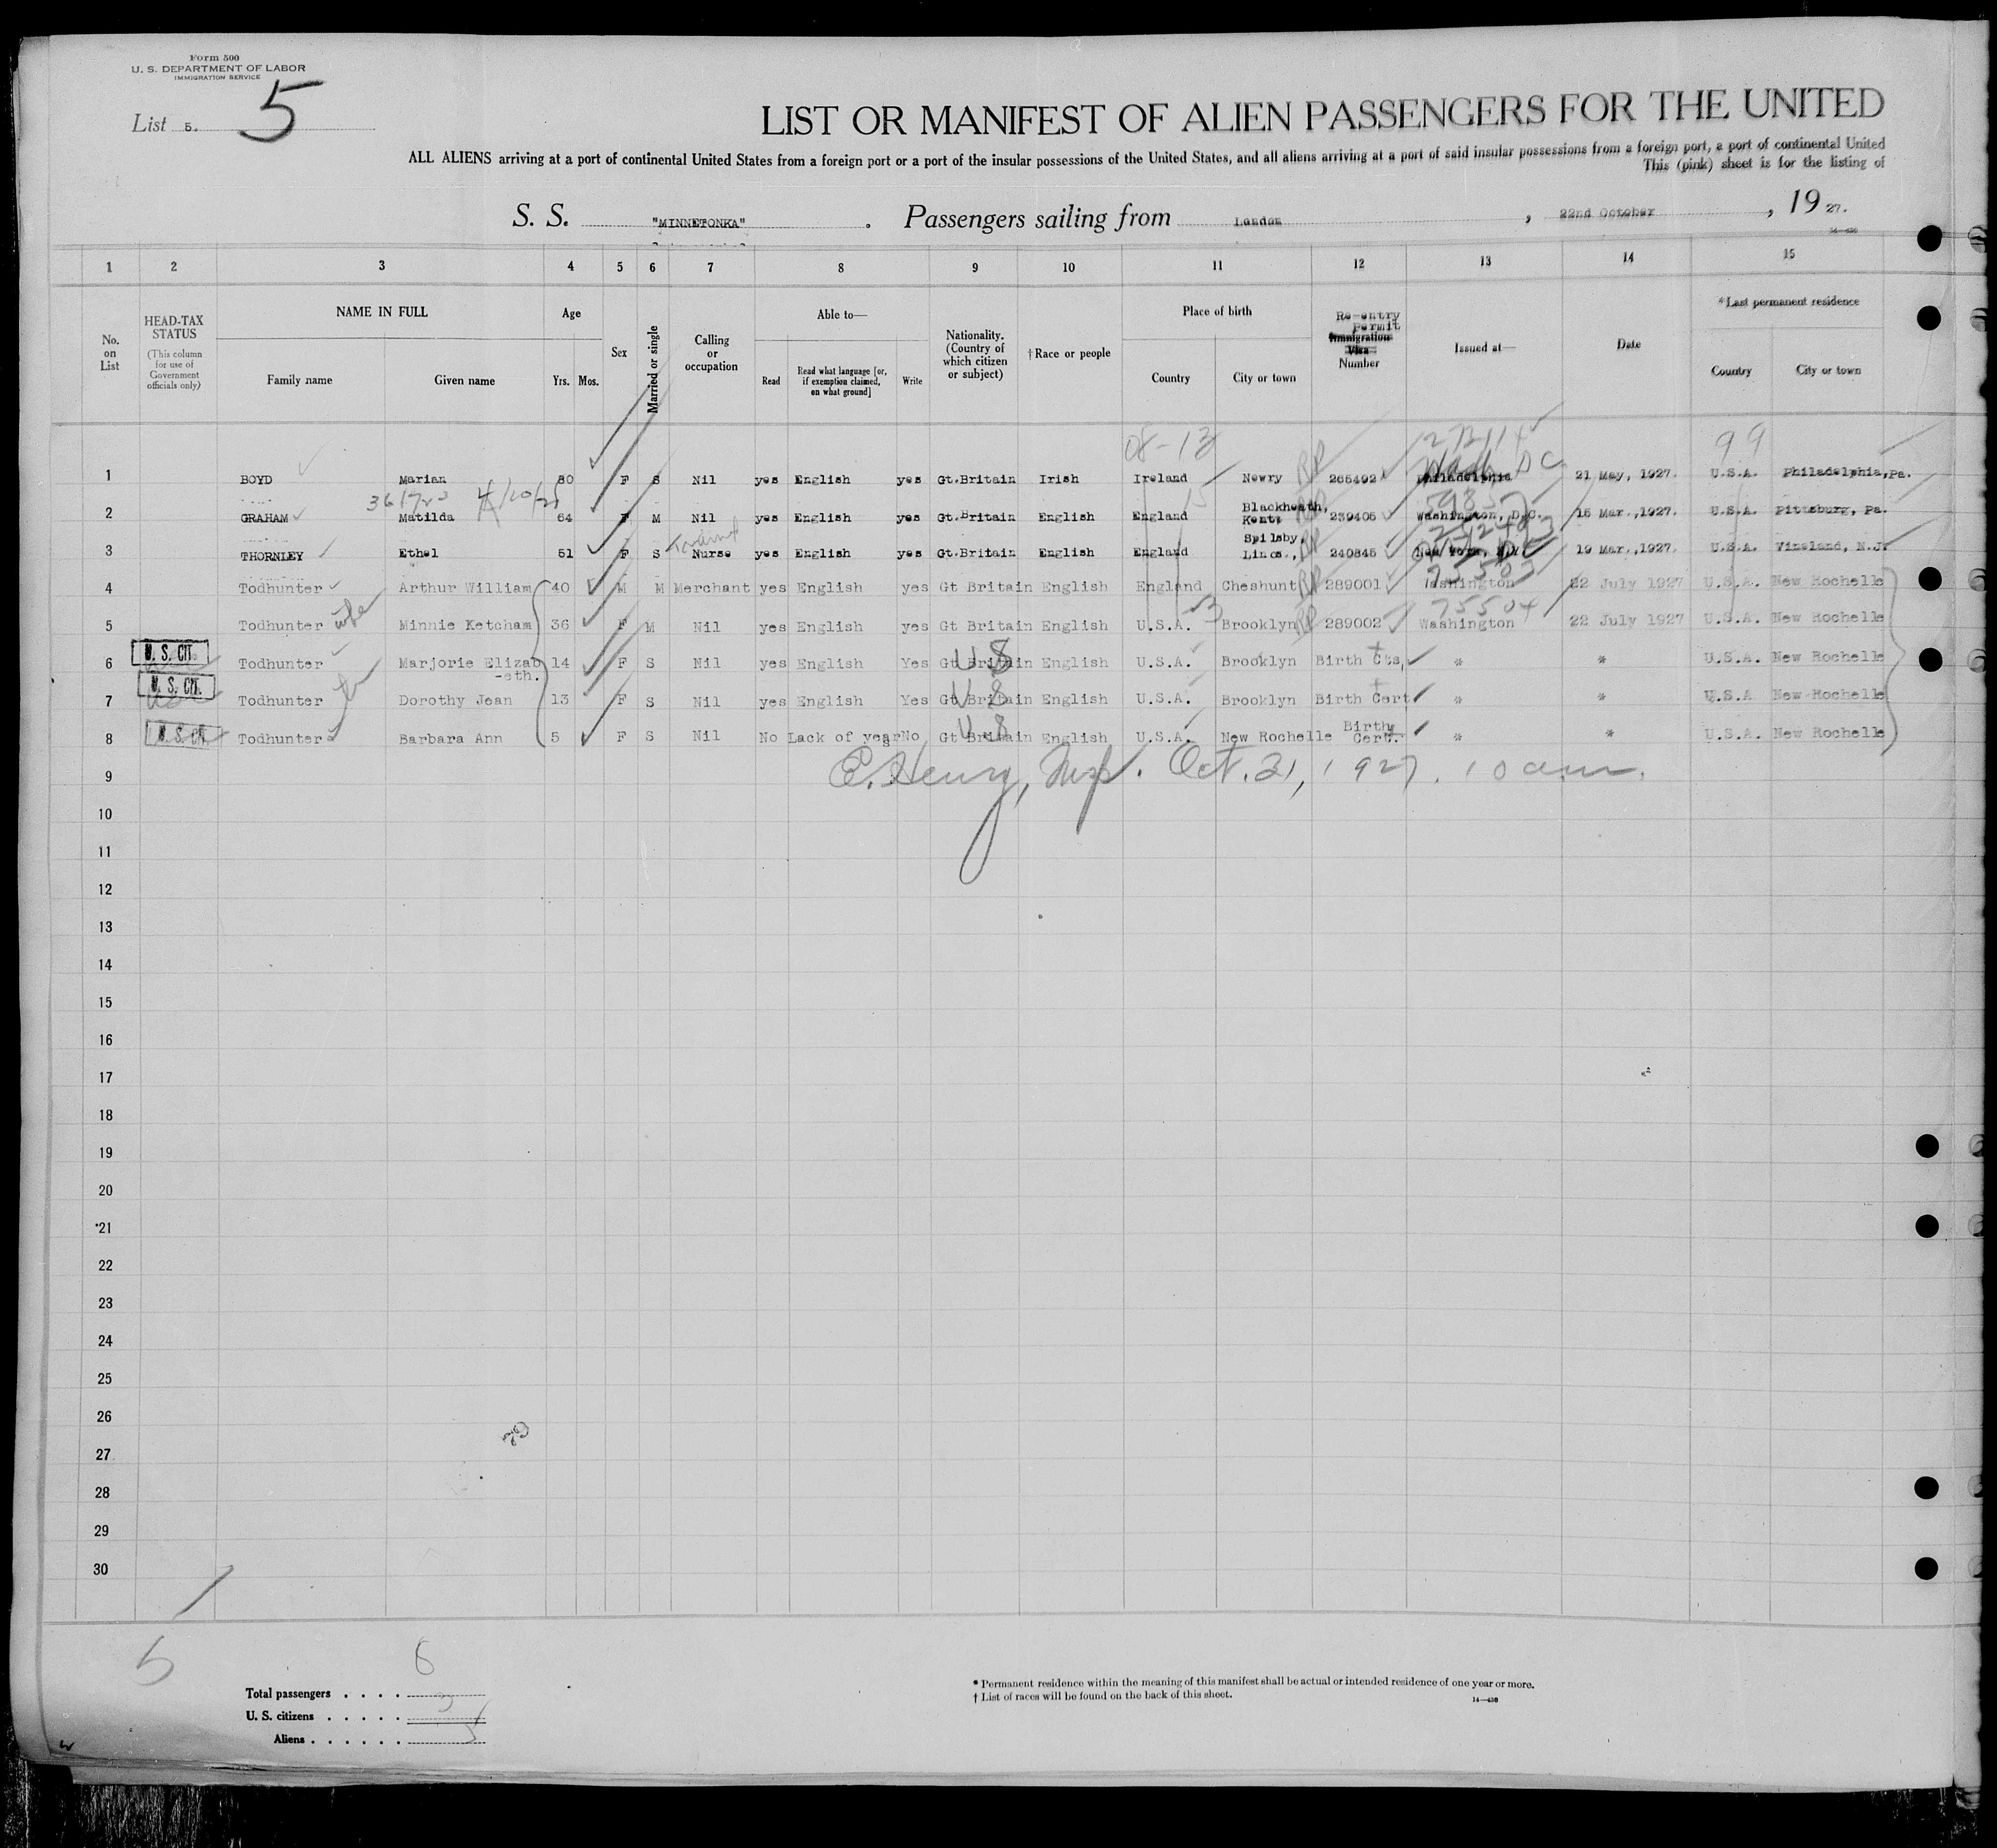 Form 500
U. S. DEPARTMENT OF LABOR
IMMIGRATION SERVICE
List 5. 5
LIST OR MANIFEST OF ALIEN PASSENGERS FOR THE UNITED
ALL ALIENS arriving at a port of continental United States from a foreign port or a port of the insular possessions of the United States, and all aliens arriving at a port of said insular possessions from a foreign port, a port of continental United
This (pink) sheet is for the listing of
S. S. "MINNETONKA" . Passengers sailing from London , 22nd October , 19 27.
14—430
1 2 3 4 5 6 7 8 9 10 11 12 13 14 15
No. on List
HEAD-TAX STATUS (This column for use of Government officials only)
NAME IN FULL
Family name Given name
Age
Yrs. Mos.
Sex
Married or single
Calling or occupation
Able to—
Read Read what language [or, if exemption claimed, on what ground] Write
Nationality. (Country of which citizen or subject)
†Race or people
Place of birth
Country City or town
Re-entry Permit
Immigration Visa Number
Issued at—
Date
*Last permanent residence
Country City or town
08-13 99
1 BOYD Marian 80 F S Nil yes English yes Gt.Britain Irish Ireland Newry RP 265492 Philadelphia Wash DC 21 May, 1927. U.S.A. Philadelphia,Pa.
2 GRAHAM Matilda 64 F M Nil yes English yes Gt.Britain English England Blackheath, Kent, RP 239405 Washington, D.C. 15 Mar.,1927. U.S.A. Pittsburg, Pa.
3 THORNLEY Ethel 51 F S Nurse yes English yes Gt.Britain English England Spilsby, Lincs., RP 240845 New York, N.Y. 19 Mar.,1927. U.S.A. Vineland, N.J.
4 Todhunter Arthur William 40 M M Merchant yes English yes Gt Britain English England Cheshunt RP 289001 Washington 22 July 1927 U.S.A. New Rochelle
75504
5 Todhunter wife Minnie Ketcham 36 F M Nil yes English yes Gt Britain English U.S.A. Brooklyn RP 289002 Washington 22 July 1927 U.S.A. New Rochelle
6 U. S. CIT. Todhunter Marjorie Elizab-eth. 14 F S Nil yes English Yes Gt Britain US English U.S.A. Brooklyn Birth Cts, * * U.S.A. New Rochelle
7 U. S. CIT. Todhunter Dorothy Jean 13 F S Nil yes English Yes Gt Britain US English U.S.A. Brooklyn Birth Cert * * U.S.A New Rochelle
8 U. S. CIT. Todhunter Barbara Ann 5 F S Nil No Lack of year No Gt Britain US English U.S.A. New Rochelle Birth Cert. * * U.S.A. New Rochelle
9 E. Henry, Insp. Oct. 31, 1927. 10 am.
10
11
12
13
14
15
16
17
18
19
20
21
22
23
24
25
26
27
28
29
30
5 6
Total passengers . . . .
U. S. citizens . . . . . 3
Aliens . . . . . . 5
* Permanent residence within the meaning of this manifest shall be actual or intended residence of one year or more.
† List of races will be found on the back of this sheet.
14—430